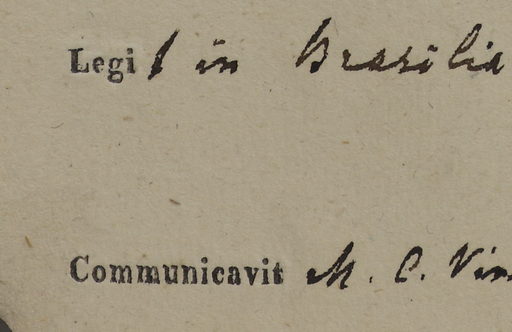 Legit in Brasilia
Communicavit M. C. Vin